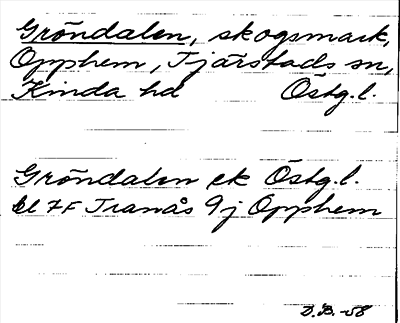 Gröndalen, skogsmark,
Opphem, Tjärstads sn,
Kinda hd Östg.l.
Gröndalen ek Östg.l.
bl 7F Tranås 9j Opphem
D.B.-58